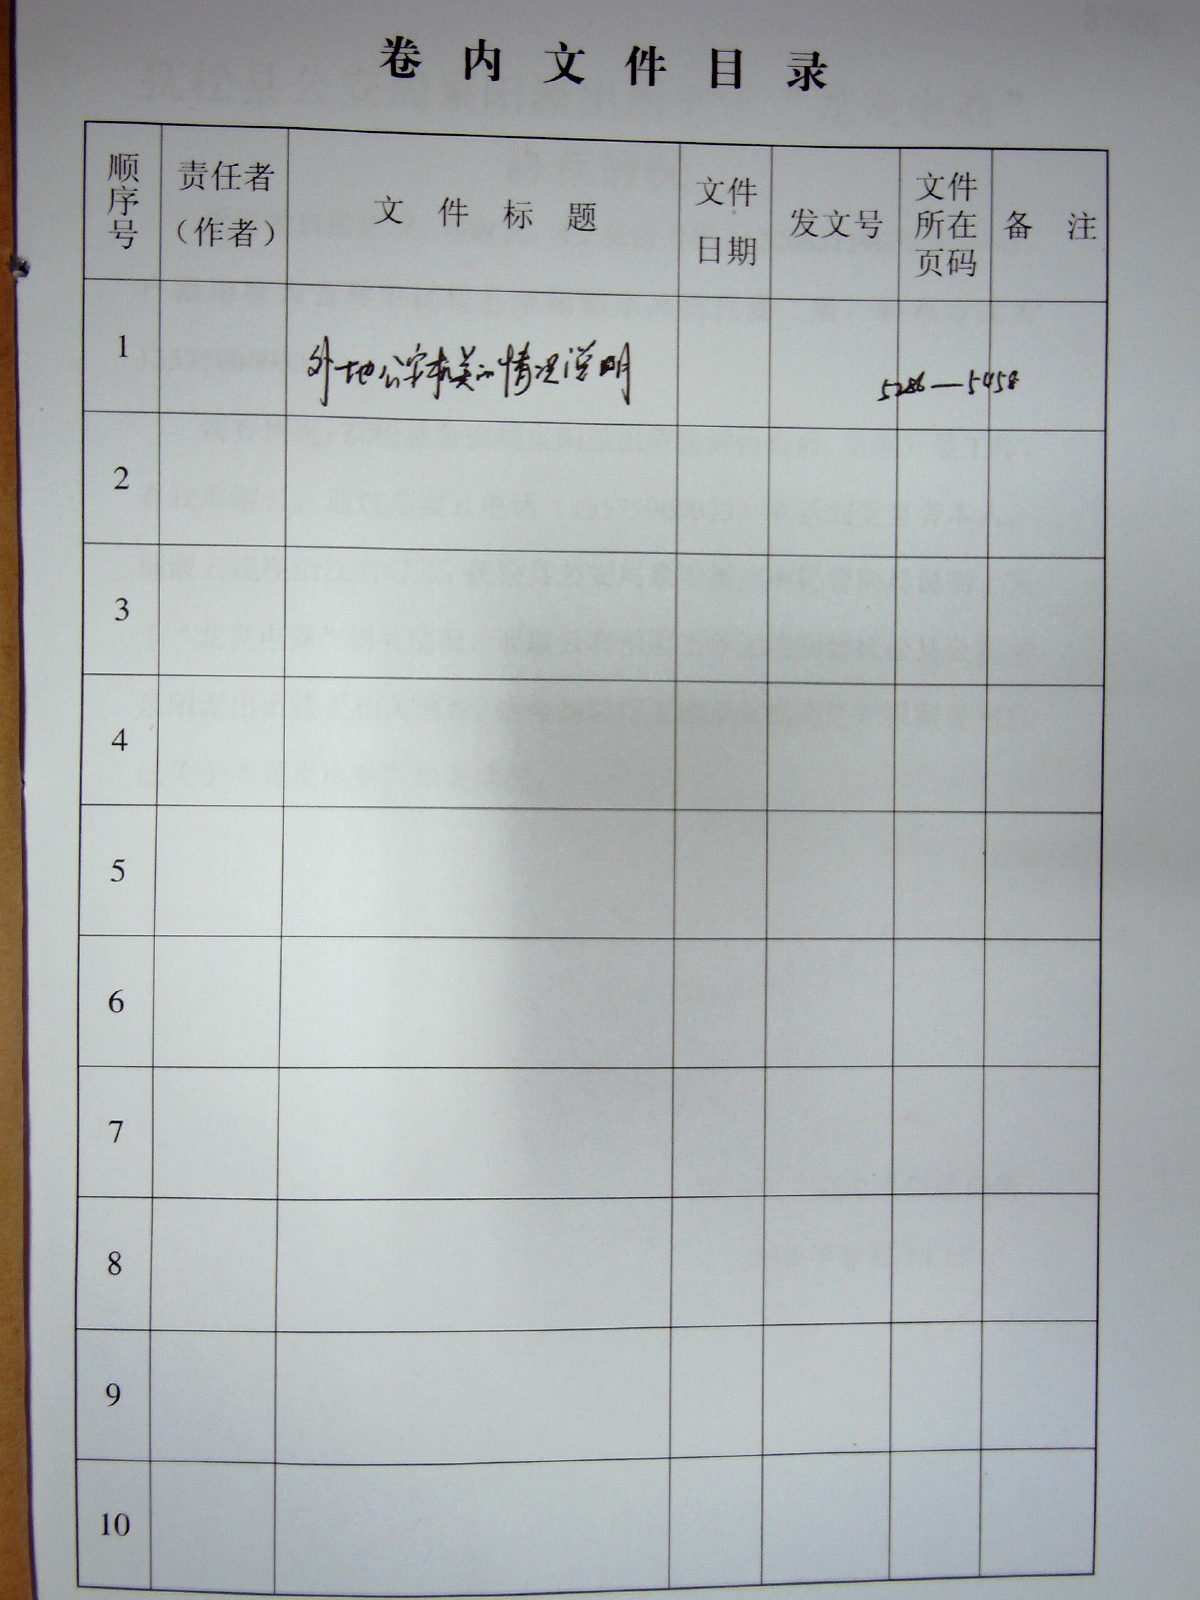 卷内文件目录
顺序号 责任者（作者） 文件标题 文件日期 发文号 文件所在页码 备注
1 外地公安机关的情况说明 5286—5458
2
3
4
5
6
7
8
9
10